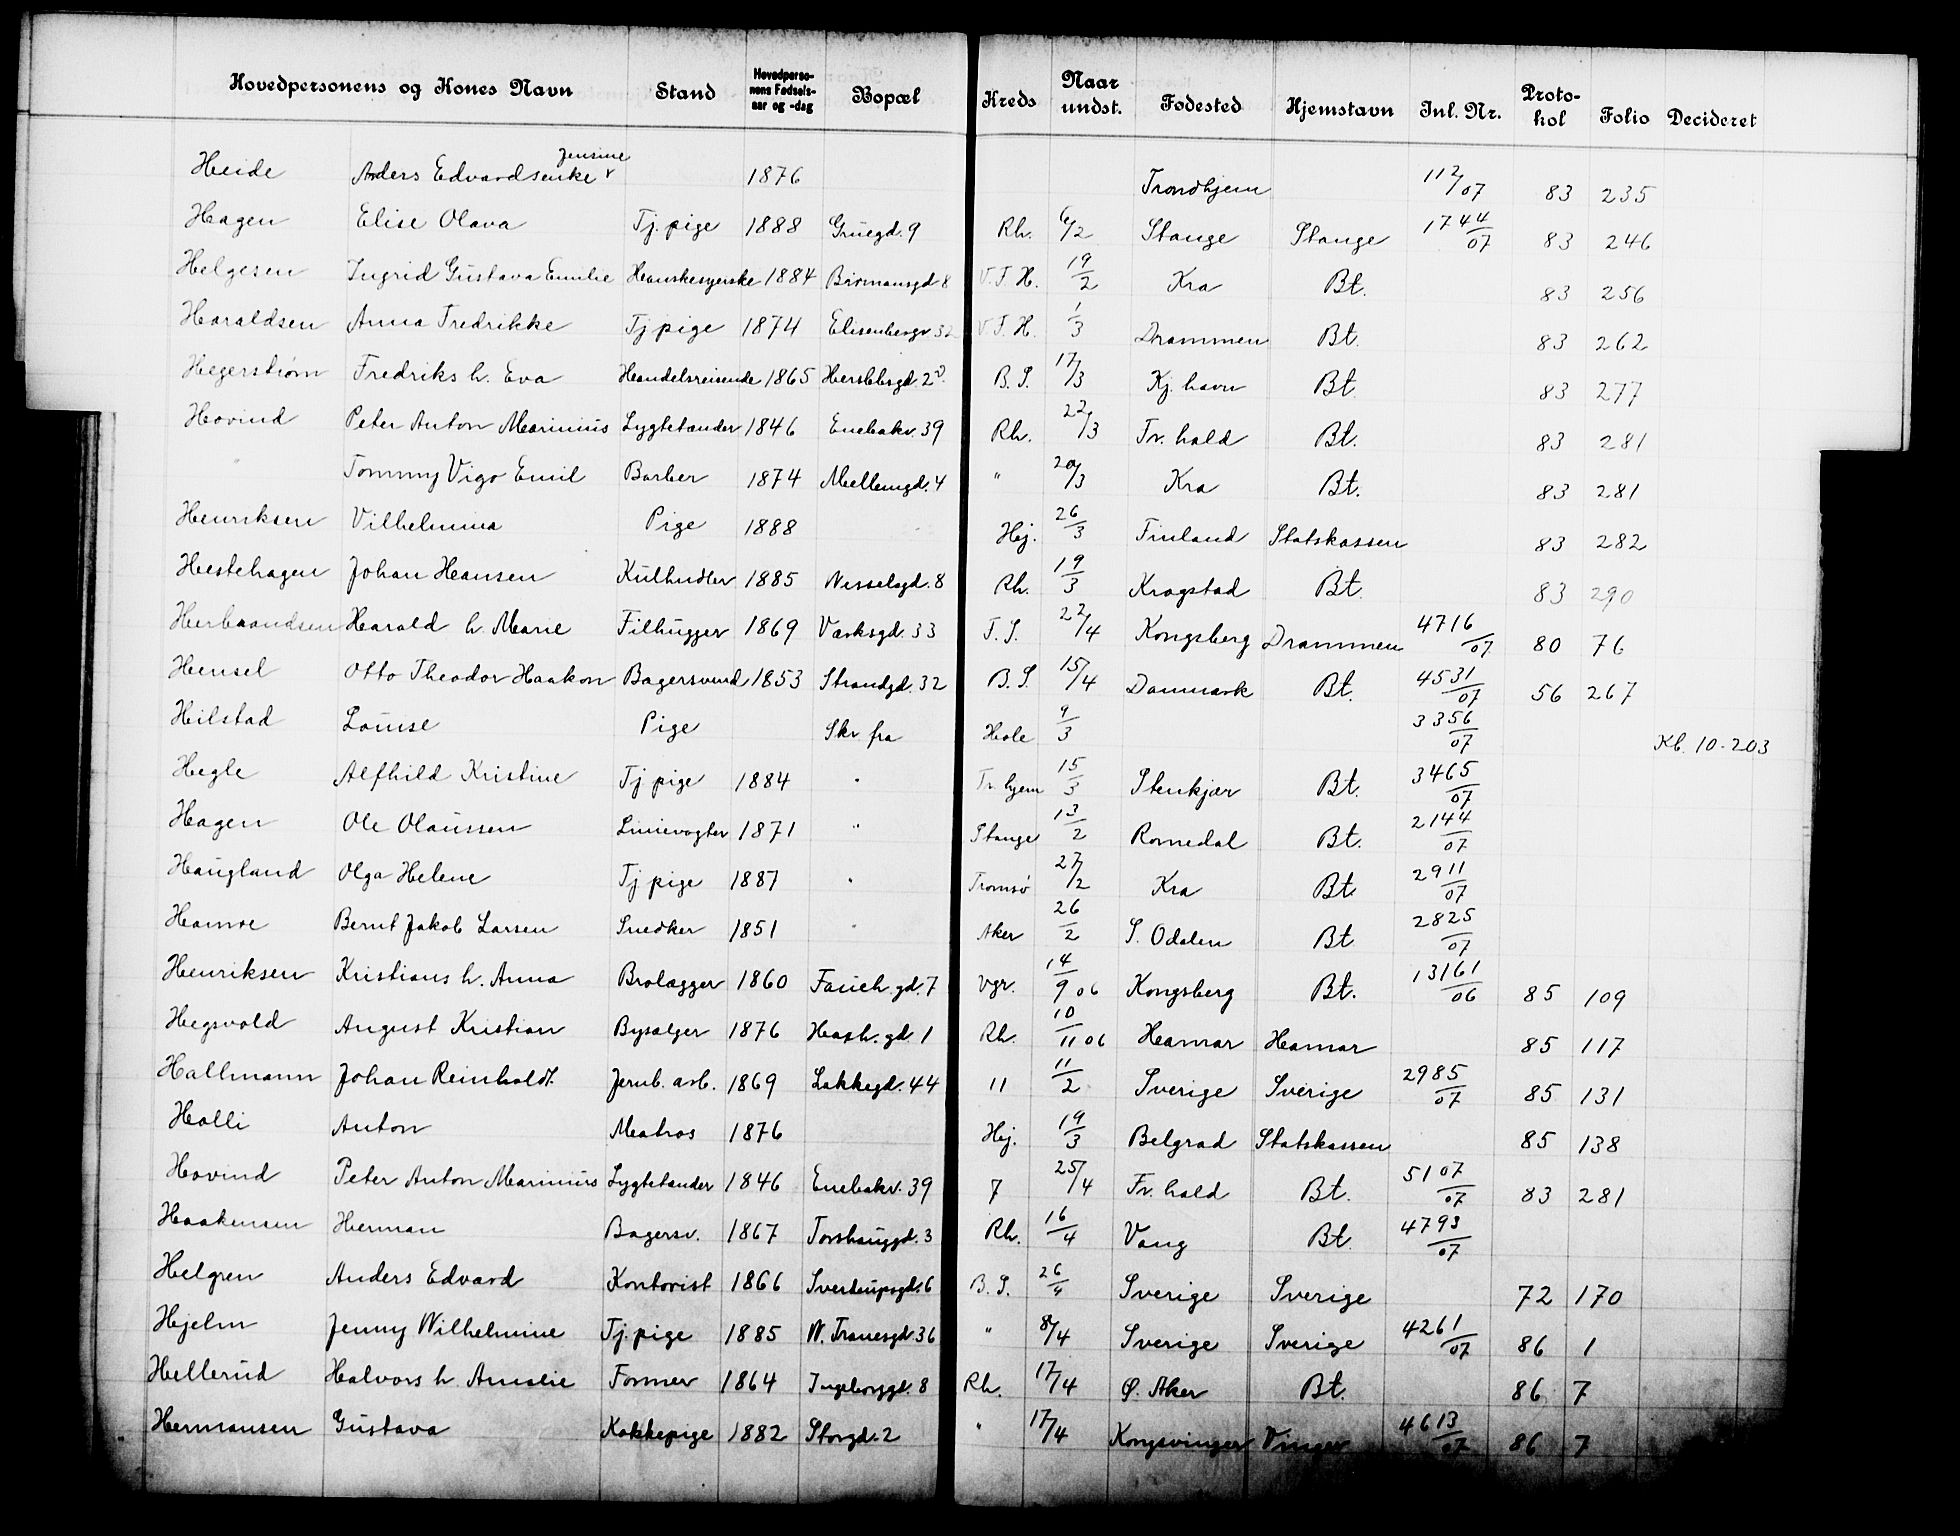 Hovedpersonens og Kones Navn Stand Hovedpersonens Fødselsaar og -dag Bopæl Kreds Naar undst. Fødested Hjemstavn Inl. Nr. Protokol Folio Decideret
Heide Anders Edvardsenke Jensine 1876 Trondhjem 112/07 83 235
Hagen Elise Olava Tj. pige 1888 Gruegd. 9 Rh. 6/2 Stange Stange 1744/07 83 246
Helgesen Ingrid Gustava Emilie Hanskesyerske 1884 Birmansgd 8 V. T. H. 19/2 Kra Bt. 83 256
Haraldsen Anna Fredrikke Tj pige 1874 Elisenbergv 32 V. T. H. 1/3 Drammen Bt. 83 262
Hegerstrøm Fredriks h. Eva Handelsreisende 1865 Herslebsgd. 2 B. S. 17/3 Kj. havn Bt. 83 277
Hovind Peter Anton Marinius Lygtetænder 1846 Enebakv. 39 Rh. 22/3 Fr. hald Bt. 83 281
" Tommy Vigo Emil Barber 1874 Mellemgd. 4 " 20/3 Kra Bt. 83 281
Henriksen Vilhelmina Pige 1888 Hej. 26/3 Finland Statskassen 83 282
Hestehagen Johan Hansen Kulhndler 1885 Wesselsgd. 8 Rh. 19/3 Kragstad Bt. 83 290
Herbrandsen Harald h. Marie Filhugger 1869 Værksgd. 33 T. S. 22/4 Kongsberg Drammen 4716/07 80 76
Hensel Otto Theodor Haakon Bagersvend 1853 Strandgd. 32 B. S. 15/4 Danmark Bt. 4531/07 56 267
Hilstad Louise Pige Skr fra Hole 9/3 3356/07 Kb. 10-203
Hegle Alfhild Kristine Tj pige 1884 " Tr. hjem 15/3 Stenkjær Bt. 3465/07
Hagen Ole Olaussen Linievogter 1871 " Stange 13/2 Romedal Bt. 2144/07
Haugland Olga Helene Tj pige 1887 " Tromsø 27/2 Kra Bt. 2911/07
Hamre Bernt Jakob Larsen Snedker 1851 " Aker 26/2 S. Odalen Bt. 2825/07
Henriksen Kristians h. Anna Brolægger 1860 Fauch. gd. 7 Vgr. 14/9 06 Kongsberg Bt. 13161/06 85 109
Hegsvold August Kristian Bysælger 1876 Hash. gd 1 Rh. 10/11 06 Hamar Hamar 85 117
Hallmann Johan Reinholdt. Jernb. arb. 1869 Lakkegd. 44 11 11/2 Sverige Sverige 2985/07 85 131
Halli Anton Matros 1876 Hej. 19/3 Belgrad Statskassen 85 138
Hovind Peter Anton Marinius Lygtetænder 1846 Enebakv. 39 7 25/4 Fr. hald Bt. 5107/07 83 281
Haakensen Herman Bagersv. 1867 Torshauggd. 3 Rh. 16/4 Vang Bt. 4793/07
Helgren Anders Edvard Kontorist 1866 Sverdrupsgd. 6 B. S. 26/4 Sverige Sverige 72 170
Hjelm Jenny Wilhelmine Tj. pige 1885 W. Tranesgd. 36 " 8/4 Sverige Sverige 4261/07 86 1
Hellerud Halvors h. Amalie Former 1864 Ingeborggd. 8 Rh. 17/4 Ø. Aker Bt. 86 7
Hermansen Gustava Kokkepige 1882 Storgd. 2 " 17/4 Kongsvinger Vinger 4613/07 86 7